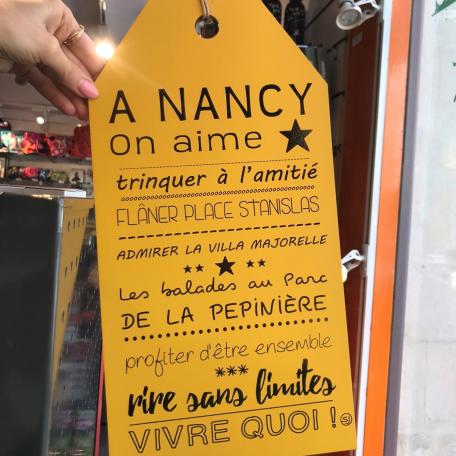 A NANCY
On aime
trinquer à l'amitié
FLÂNER PLACE STANISLAS
ADMIRER LA VILLA MAJORELLE
Les balades au Parc
DE LA PEPINIÈRE
profiter d'être ensemble
rire sans limites
VIVRE QUOI !